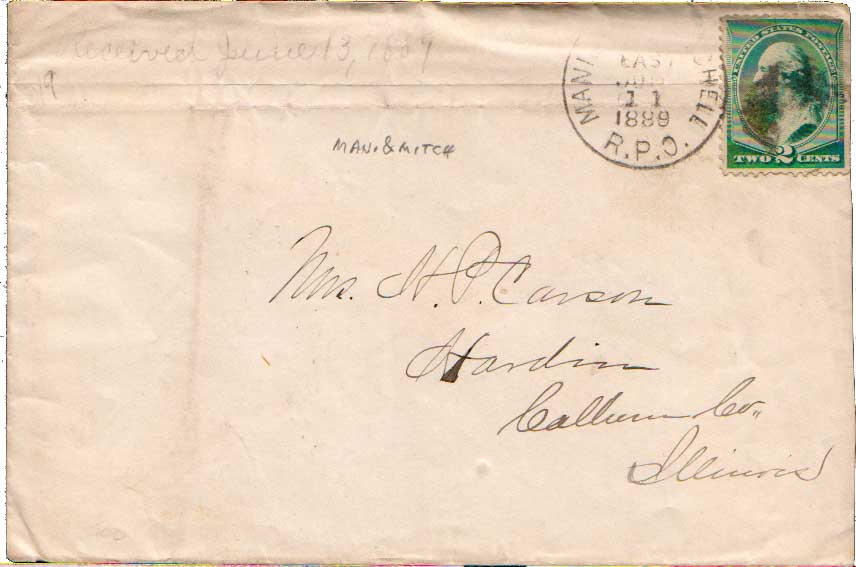 Received June 13, 1889
19
MAN. & MITCH
MAN HELL
EAST
JUN
11
1889
R.P.O.
UNITED STATES POSTAGE
TWO 2 CENTS
Mrs. H. P. Carson
Hardin
Calhoun Co.,
Illinois